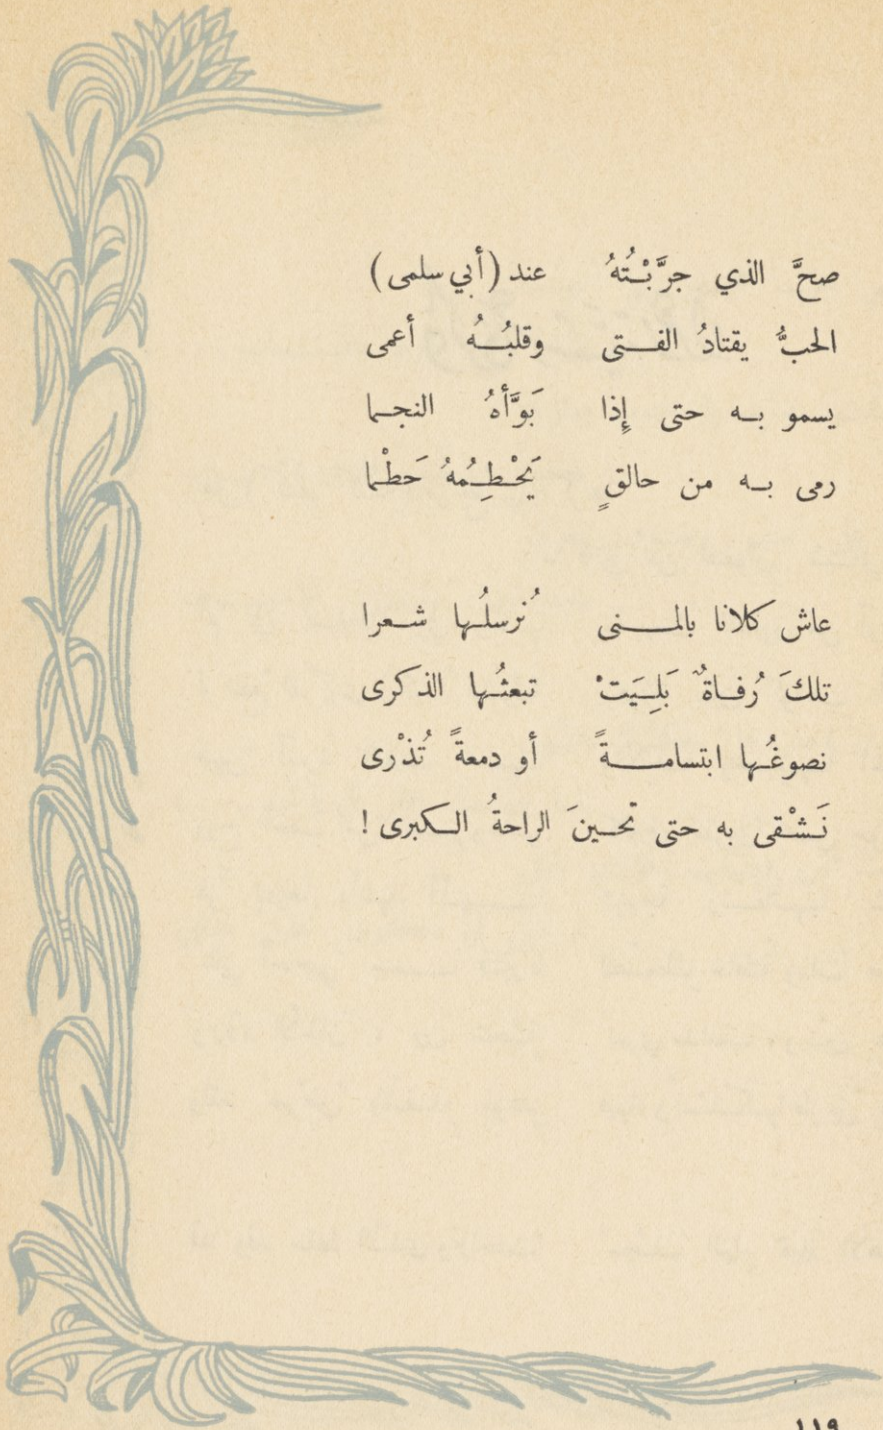 صحَّ الذي جرَّبْتُهُ عند (أبي سلمى)
الحبُّ يقتادُ الفتى وقلبُهُ أعمى
يسمو به حتى إِذا بَوَّأهُ النجما
رمى به من حالقٍ يَحْطِمُهُ حَطْما
عاش كلانا بالمنى نُرسلُها شعرا
تلكَ رُفاةٌ بَلِيَتْ تبعثُها الذكرى
نصوغُها ابتسامةً أو دمعةً تُذْرى
نَشْقى به حتى تحينَ الراحةُ الكبرى !
١١٩